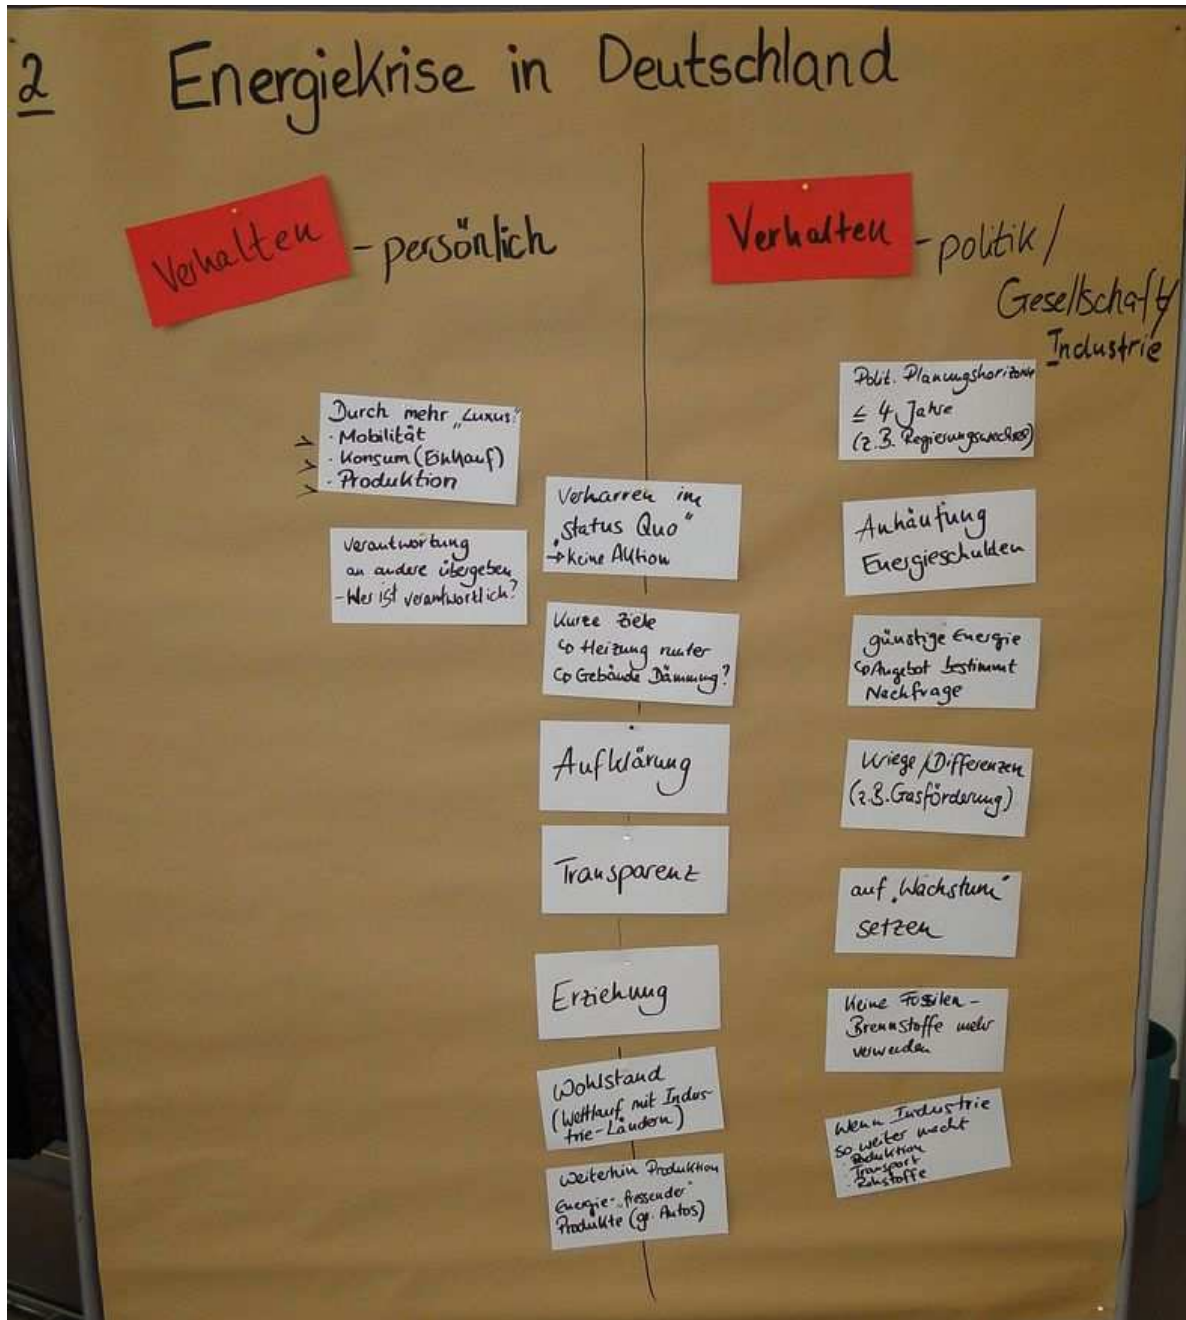 2 Energiekrise in Deutschland
Verhalten - persönlich
Durch mehr „Luxus“
· Mobilität
· Konsum (Einkauf)
· Produktion
Verantwortung
an andere übergeben
- Wer ist verantwortlich?
Verharren im
„Status Quo“
→ Keine Aktion
Kurze Ziele
↳ Heizung runter
↳ Gebäude Dämmung?
Aufklärung
Transparenz
Erziehung
Wohlstand
(Wettlauf mit Indus-
trie-Ländern)
Weiterhin Produktion
Energie-„fressender“
Produkte (gr. Autos)
Verhalten - politik /
Gesellschaft/
Industrie
Polit. Planungshorizonte
≤ 4 Jahre
(z.B. Regierungswechsel)
Anhäufung
Energieschulden
günstige Energie
↳ Angebot bestimmt
Nachfrage
Kriege / Differenzen
(z.B. Gasförderung)
auf „Wachstum“
setzen
Keine Fossilen-
Brennstoffe mehr
verwenden
Wenn Industrie
so weiter macht
· Produktion
· Transport
· Rohstoffe